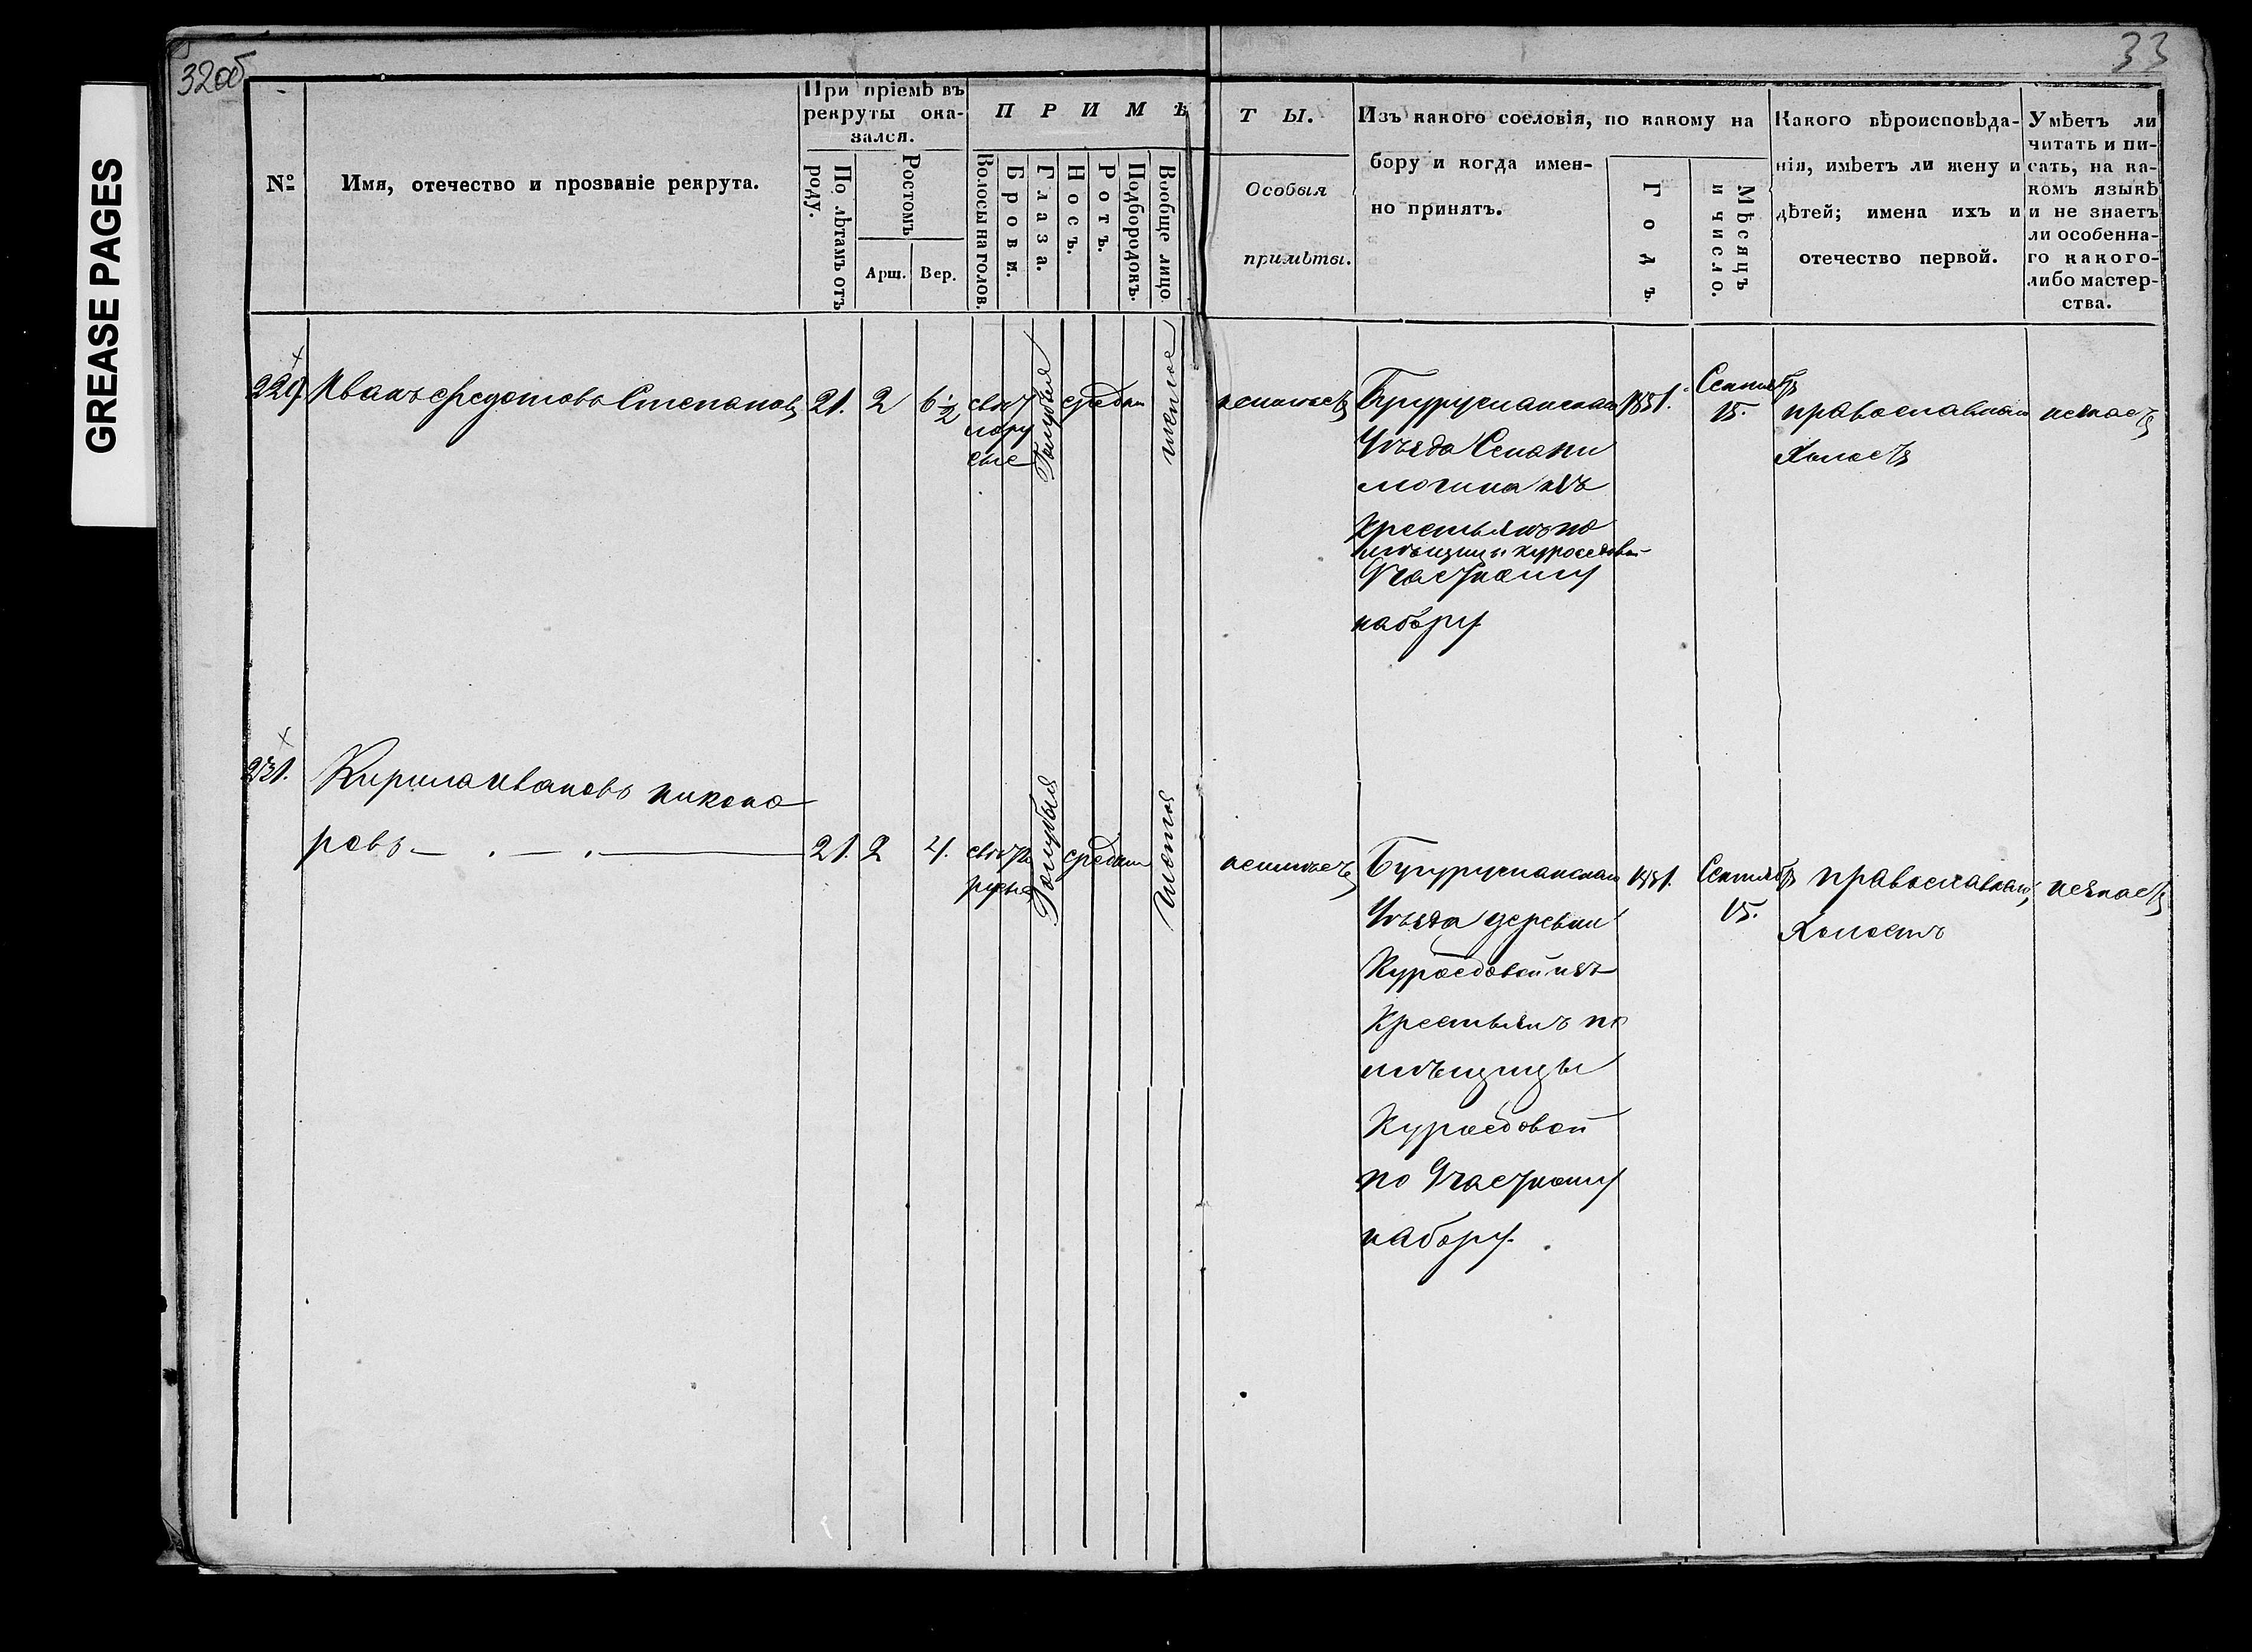 32об
33
GREASE PAGES
№
Имя, отечество и прозваніе рекрута.
При пріемѣ въ
рекруты ока-
зался.
По лѣтамъ отъ
роду.
Ростомъ
Арш.
Вер.
П Р И М Ѣ
Волосы на голов.
Брови.
Глаза.
Носъ.
Ротъ.
Подбородокъ.
Вообще лицо
Т Ы.
Особыя
примѣты.
Изъ какого сословія, по какому на
бору и когда имен-
но принятъ.
Годъ.
Мѣсяцъ
и число.
Какого вѣроисповѣда-
нія, имѣетъ ли жену и
дѣтей; имена ихъ и
отечество первой.
Умѣетъ ли
читать и пи-
сать, на ка-
комъ языкѣ
и не знаетъ
ли особенна-
го какого-
либо мастер-
ства.
Иванъ Федотовъ Степановъ
21. 2 6 ½
свѣт
лору
сые
Голубыя
средни
чистое
неимѣетъ
Бугурусланскаго
Уѣзда
изъ
Крестьянъ по
мѣщицы Куроедовой
Участному
набору
1851.
Сентябрь
15.
православнаго
Холостъ
незнаетъ
231.
Кирила Ивановъ Никоно
ровъ
21. 2 4.
свѣтло
русыя
Голубыя
средни
чистое
неимѣетъ
Бугурусланскаго
Уѣзда деревни
Куроедовой изъ
Крестьянъ по
мѣщицы
Куроедовой
по Участному
набору.
1851.
Сентябрь
15.
православнаго,
Холостъ
незнаетъ